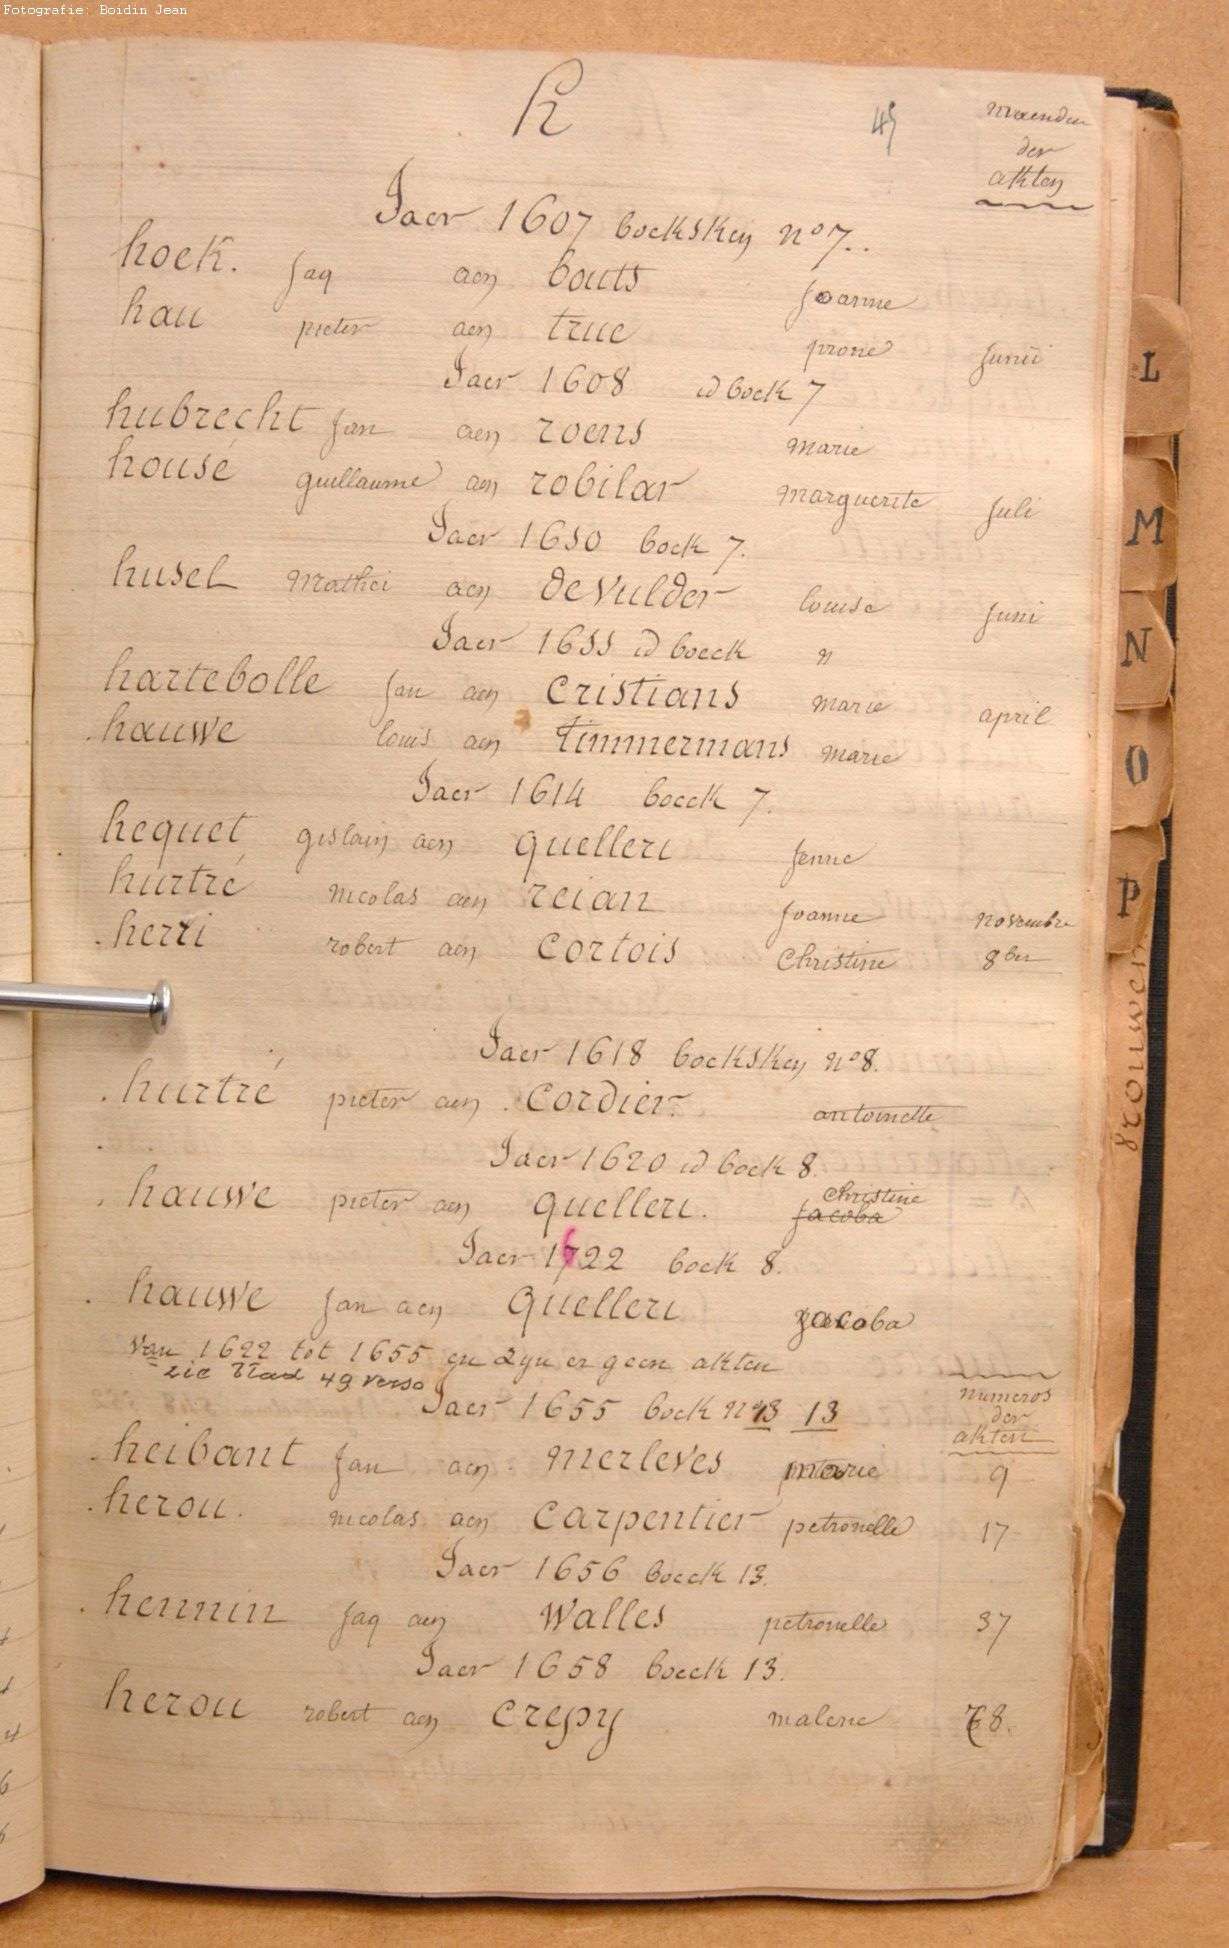 Fotografie: Boidin Jean
h
45
maenden
der
akten
Jaer 1607 boekskey no 7..
hoek. Jaq aen bouts Joanne
hau pieter aen true prone Junii
Jaer 1608 id boek 7
hubrecht Jan aen roens marie
housé guillaume aen robilar marguerite Juli
Jaer 1610 boek 7.
husel Mathei aen devulder louise Juni
Jaer 1611 id boeck "
hartebolle Jan aen cristians marie april
hauwe louis aen timmermans marie
Jaer 1614 boeck 7.
hequet gislain aen quelleri Jenne
hurtré nicolas aen reian Joanne novembre
herri robert aen cortois Christine 8ber
Jaer 1618 boekskey no 8.
hurtré pieter aen cordier antoinette
Jaer 1620 id boek 8.
hauwe pieter aen quelleri. Christine
Jacoba
Jaer 1622 boek 8.
hauwe Jan aen quelleri Jacoba
Van 1622 tot 1655 en zyn er geen akten
zie blad 49 verso
Jaer 1655 boek no 13 13
numeros
der
akten
heibant Jan aen merleves marie 9
herou. nicolas aen carpentier petronelle 17
Jaer 1656 boeck 13.
hennin Jaq aen walles petronelle 37
Jaer 1658 boeck 13.
herou robert aen crepy malene 78.
L
M
N
O
P
vrouwen